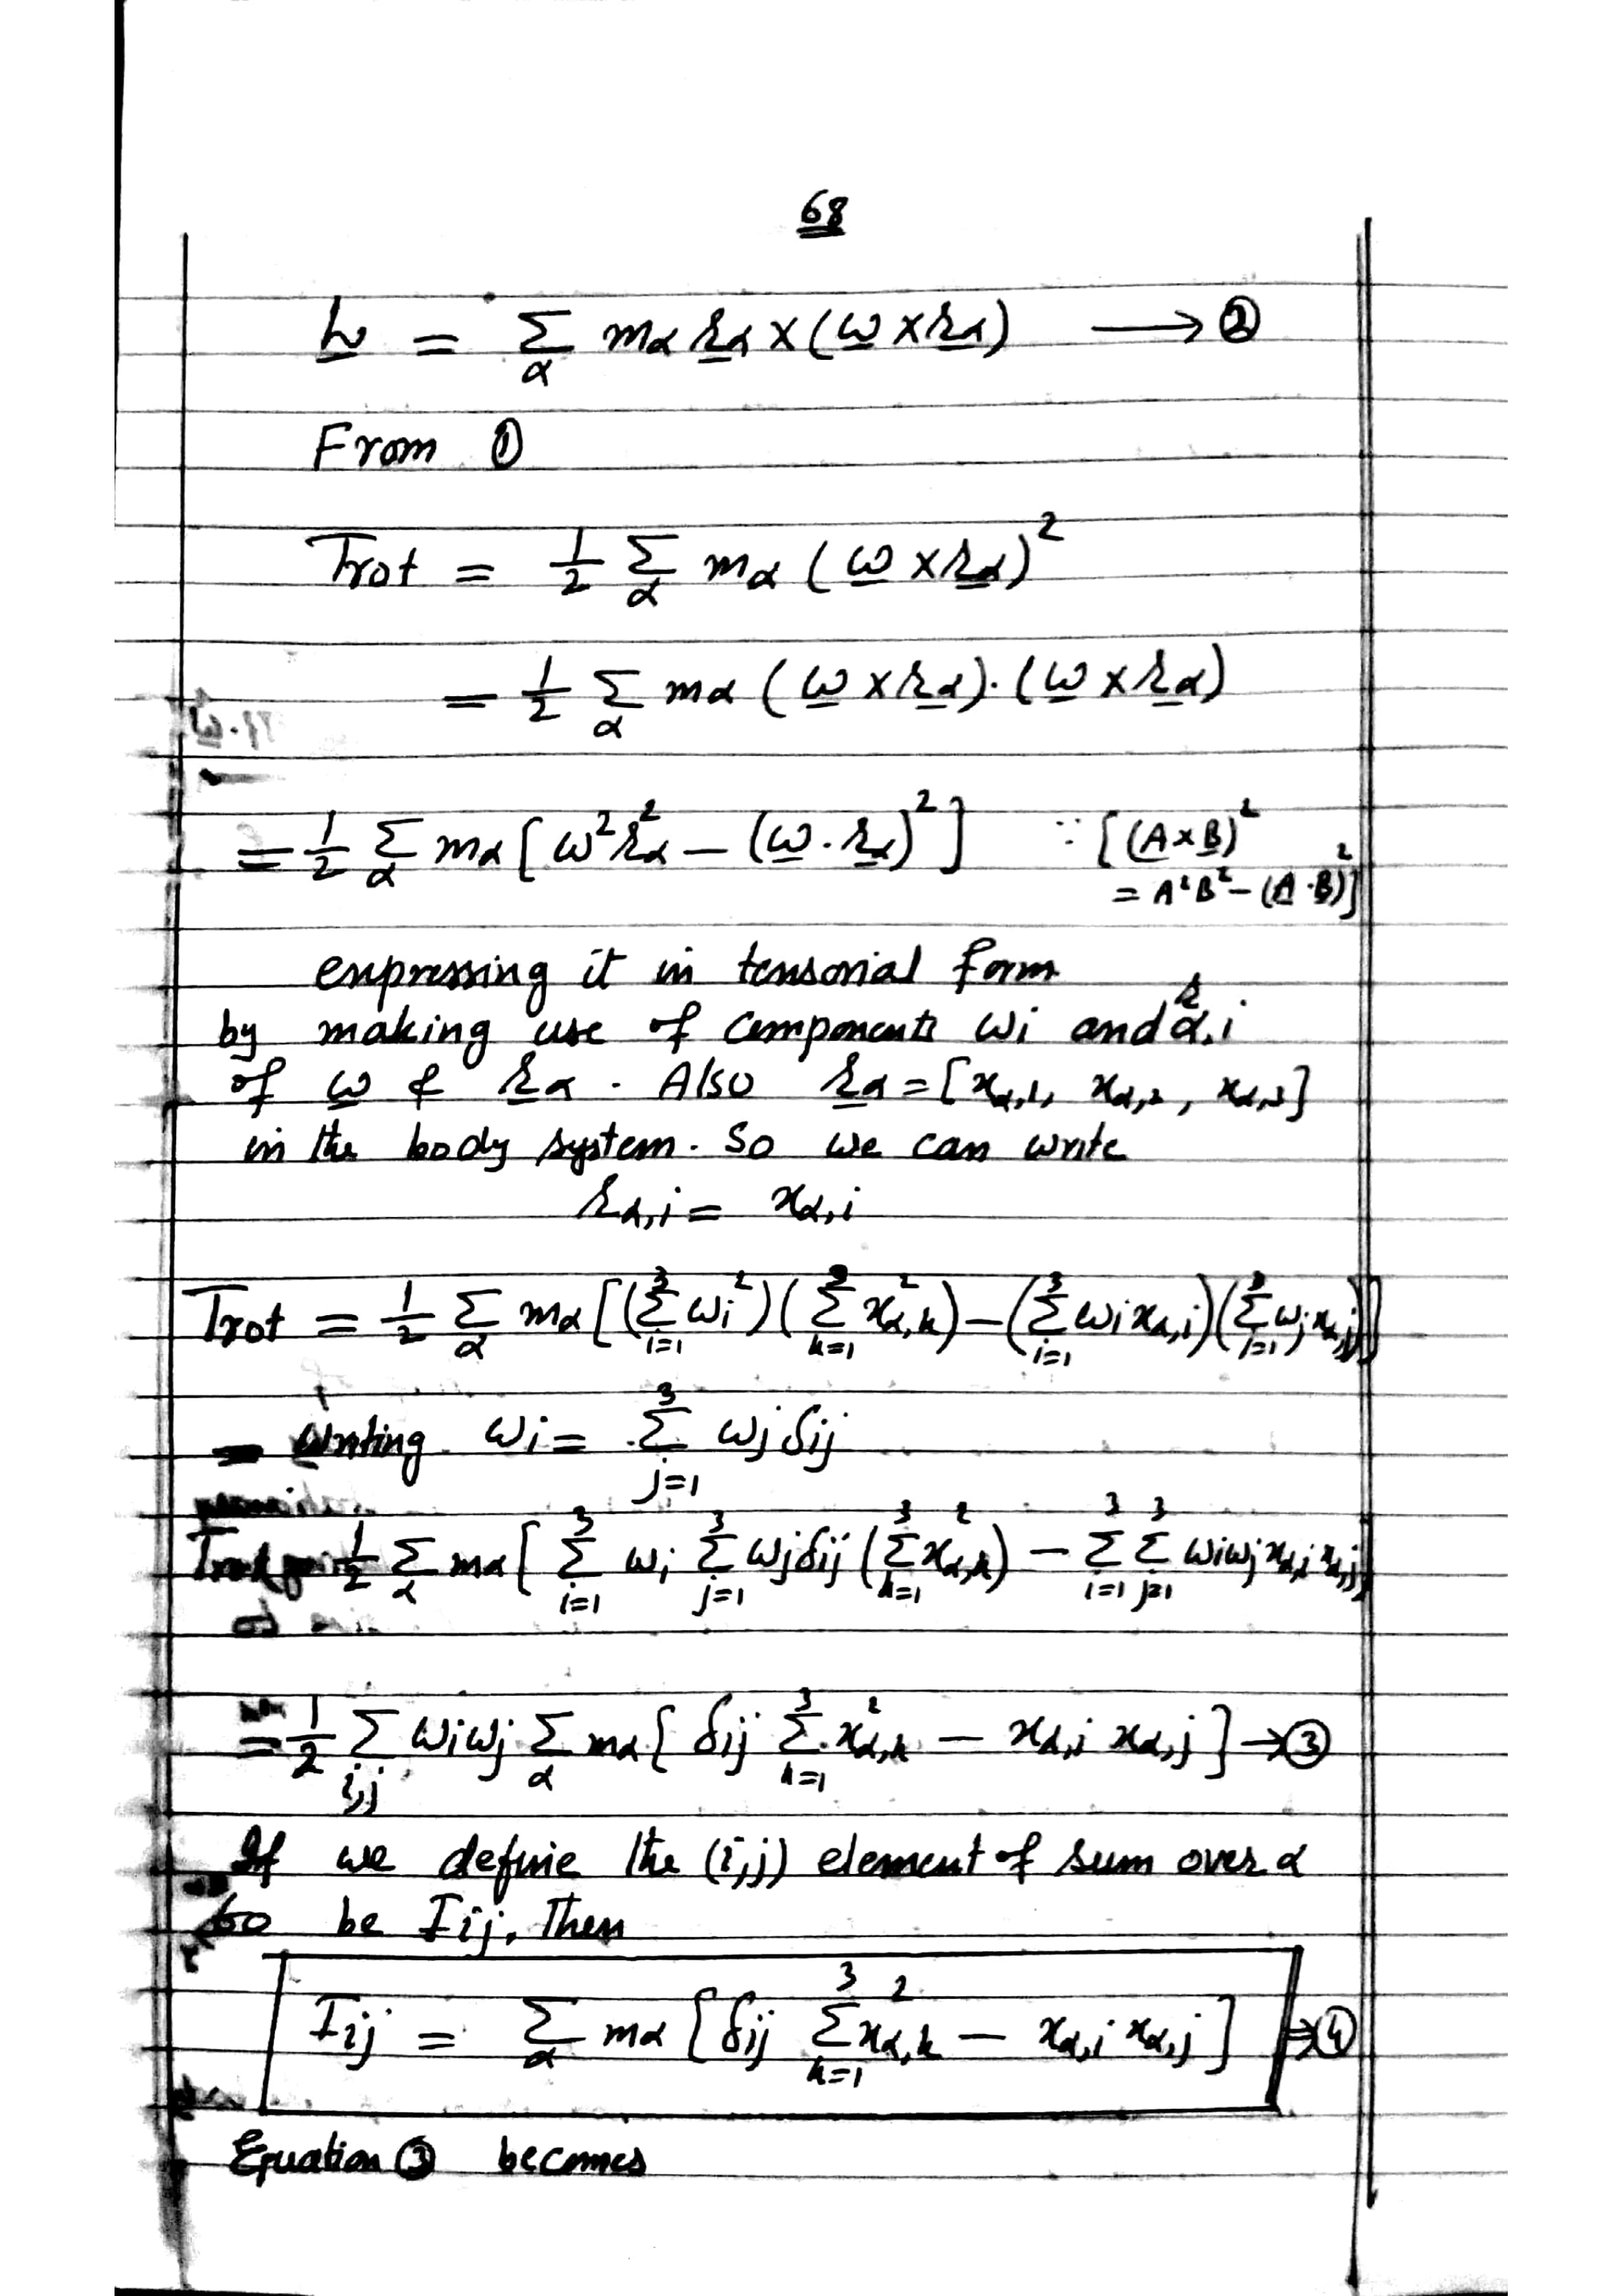 68
L = Σ_α mα rα × (ω × rα) ⟶ ②
From ①
Trot = 1/2 Σ_α mα (ω × rα)²
= 1/2 Σ_α mα (ω × rα) · (ω × rα)
= 1/2 Σ_α mα [ω² rα² − (ω · rα)²] ∵ [(A × B)²
= A²B² − (A · B)²]
expressing it in tensorial form
by making use of components ωi and rα,i
of ω & rα . Also rα = [xα,1, xα,2, xα,3]
in the body system. So we can write
rα,i = xα,i
Trot = 1/2 Σ_α mα [(Σ_{i=1}^3 ωi²)(Σ_{k=1}^3 x²α,k) − (Σ_{i=1}^3 ωi xα,i)(Σ_{j=1}^3 ωj xα,j)]
Writing ωi = Σ_{j=1}^3 ωj δij
1/2 Σ_α mα [Σ_{i=1}^3 ωi Σ_{j=1}^3 ωj δij (Σ_{k=1}^3 x²α,k) − Σ_{i=1}^3 Σ_{j=1}^3 ωi ωj xα,i xα,j]
= 1/2 Σ_{i,j} ωi ωj Σ_α mα { δij Σ_{k=1}^3 x²α,k − xα,i xα,j } → ③
If we define the (i,j) element of sum over α
to be Iij, Then
Iij = Σ_α mα [δij Σ_{k=1}^3 x²α,k − xα,i xα,j] → ④
Equation ③ becomes